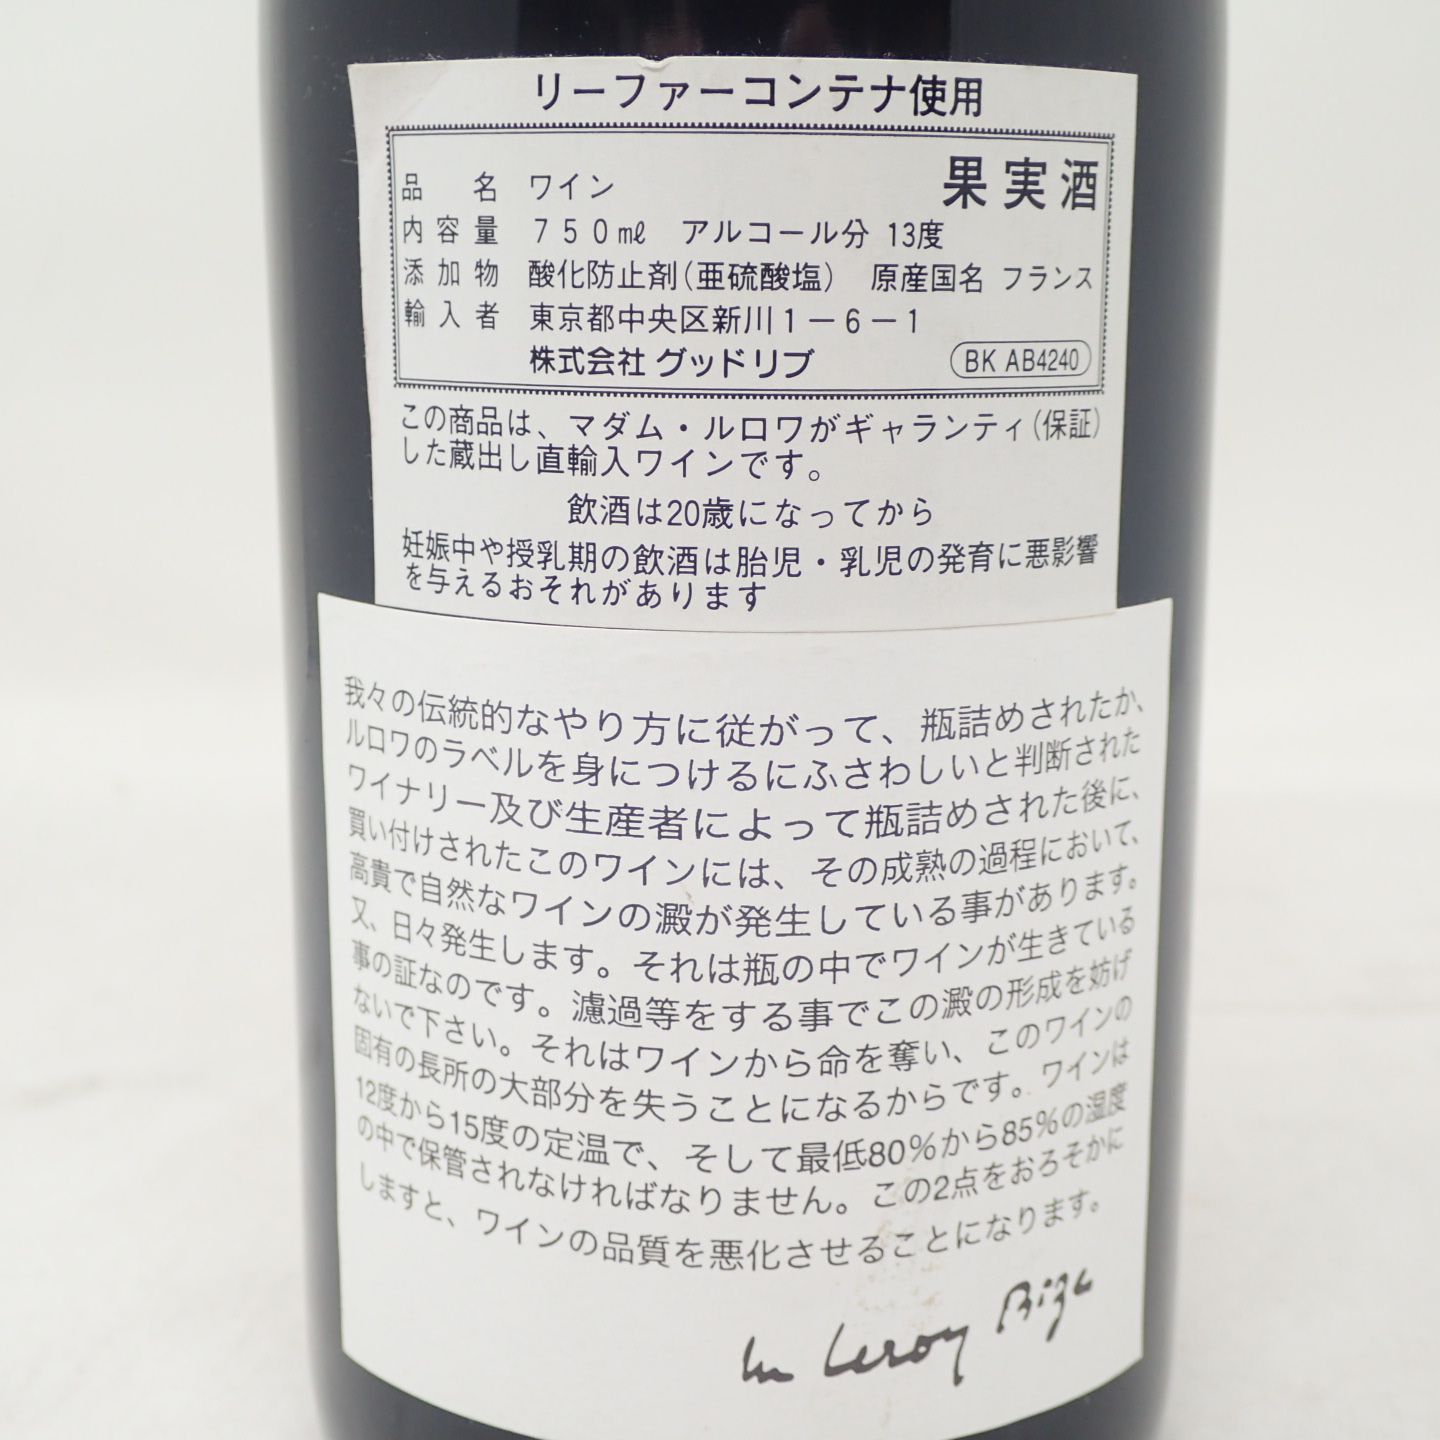 リーファーコンテナ使用
果実酒
品名 ワイン
内容量 750㎖ アルコール分 13度
添加物 酸化防止剤(亜硫酸塩) 原産国名 フランス
輸入者 東京都中央区新川1-6-1
株式会社 グッドリブ BK AB4240
この商品は、マダム・ルロワがギャランティ(保証)
した蔵出し直輸入ワインです。
飲酒は20歳になってから
妊娠中や授乳期の飲酒は胎児・乳児の発育に悪影響
を与えるおそれがあります
我々の伝統的なやり方に従がって、瓶詰めされたか、
ルロワのラベルを身につけるにふさわしいと判断された
ワイナリー及び生産者によって瓶詰めされた後に、
買い付けされたこのワインには、その成熟の過程において、
高貴で自然なワインの澱が発生している事があります。
又、日々発生します。それは瓶の中でワインが生きている
事の証なのです。濾過等をする事でこの澱の形成を妨げ
ないで下さい。それはワインから命を奪い、このワインの
固有の長所の大部分を失うことになるからです。ワインは
12度から15度の定温で、そして最低80%から85%の湿度
の中で保管されなければなりません。この2点をおろそかに
しますと、ワインの品質を悪化させることになります。
Leroy Bize